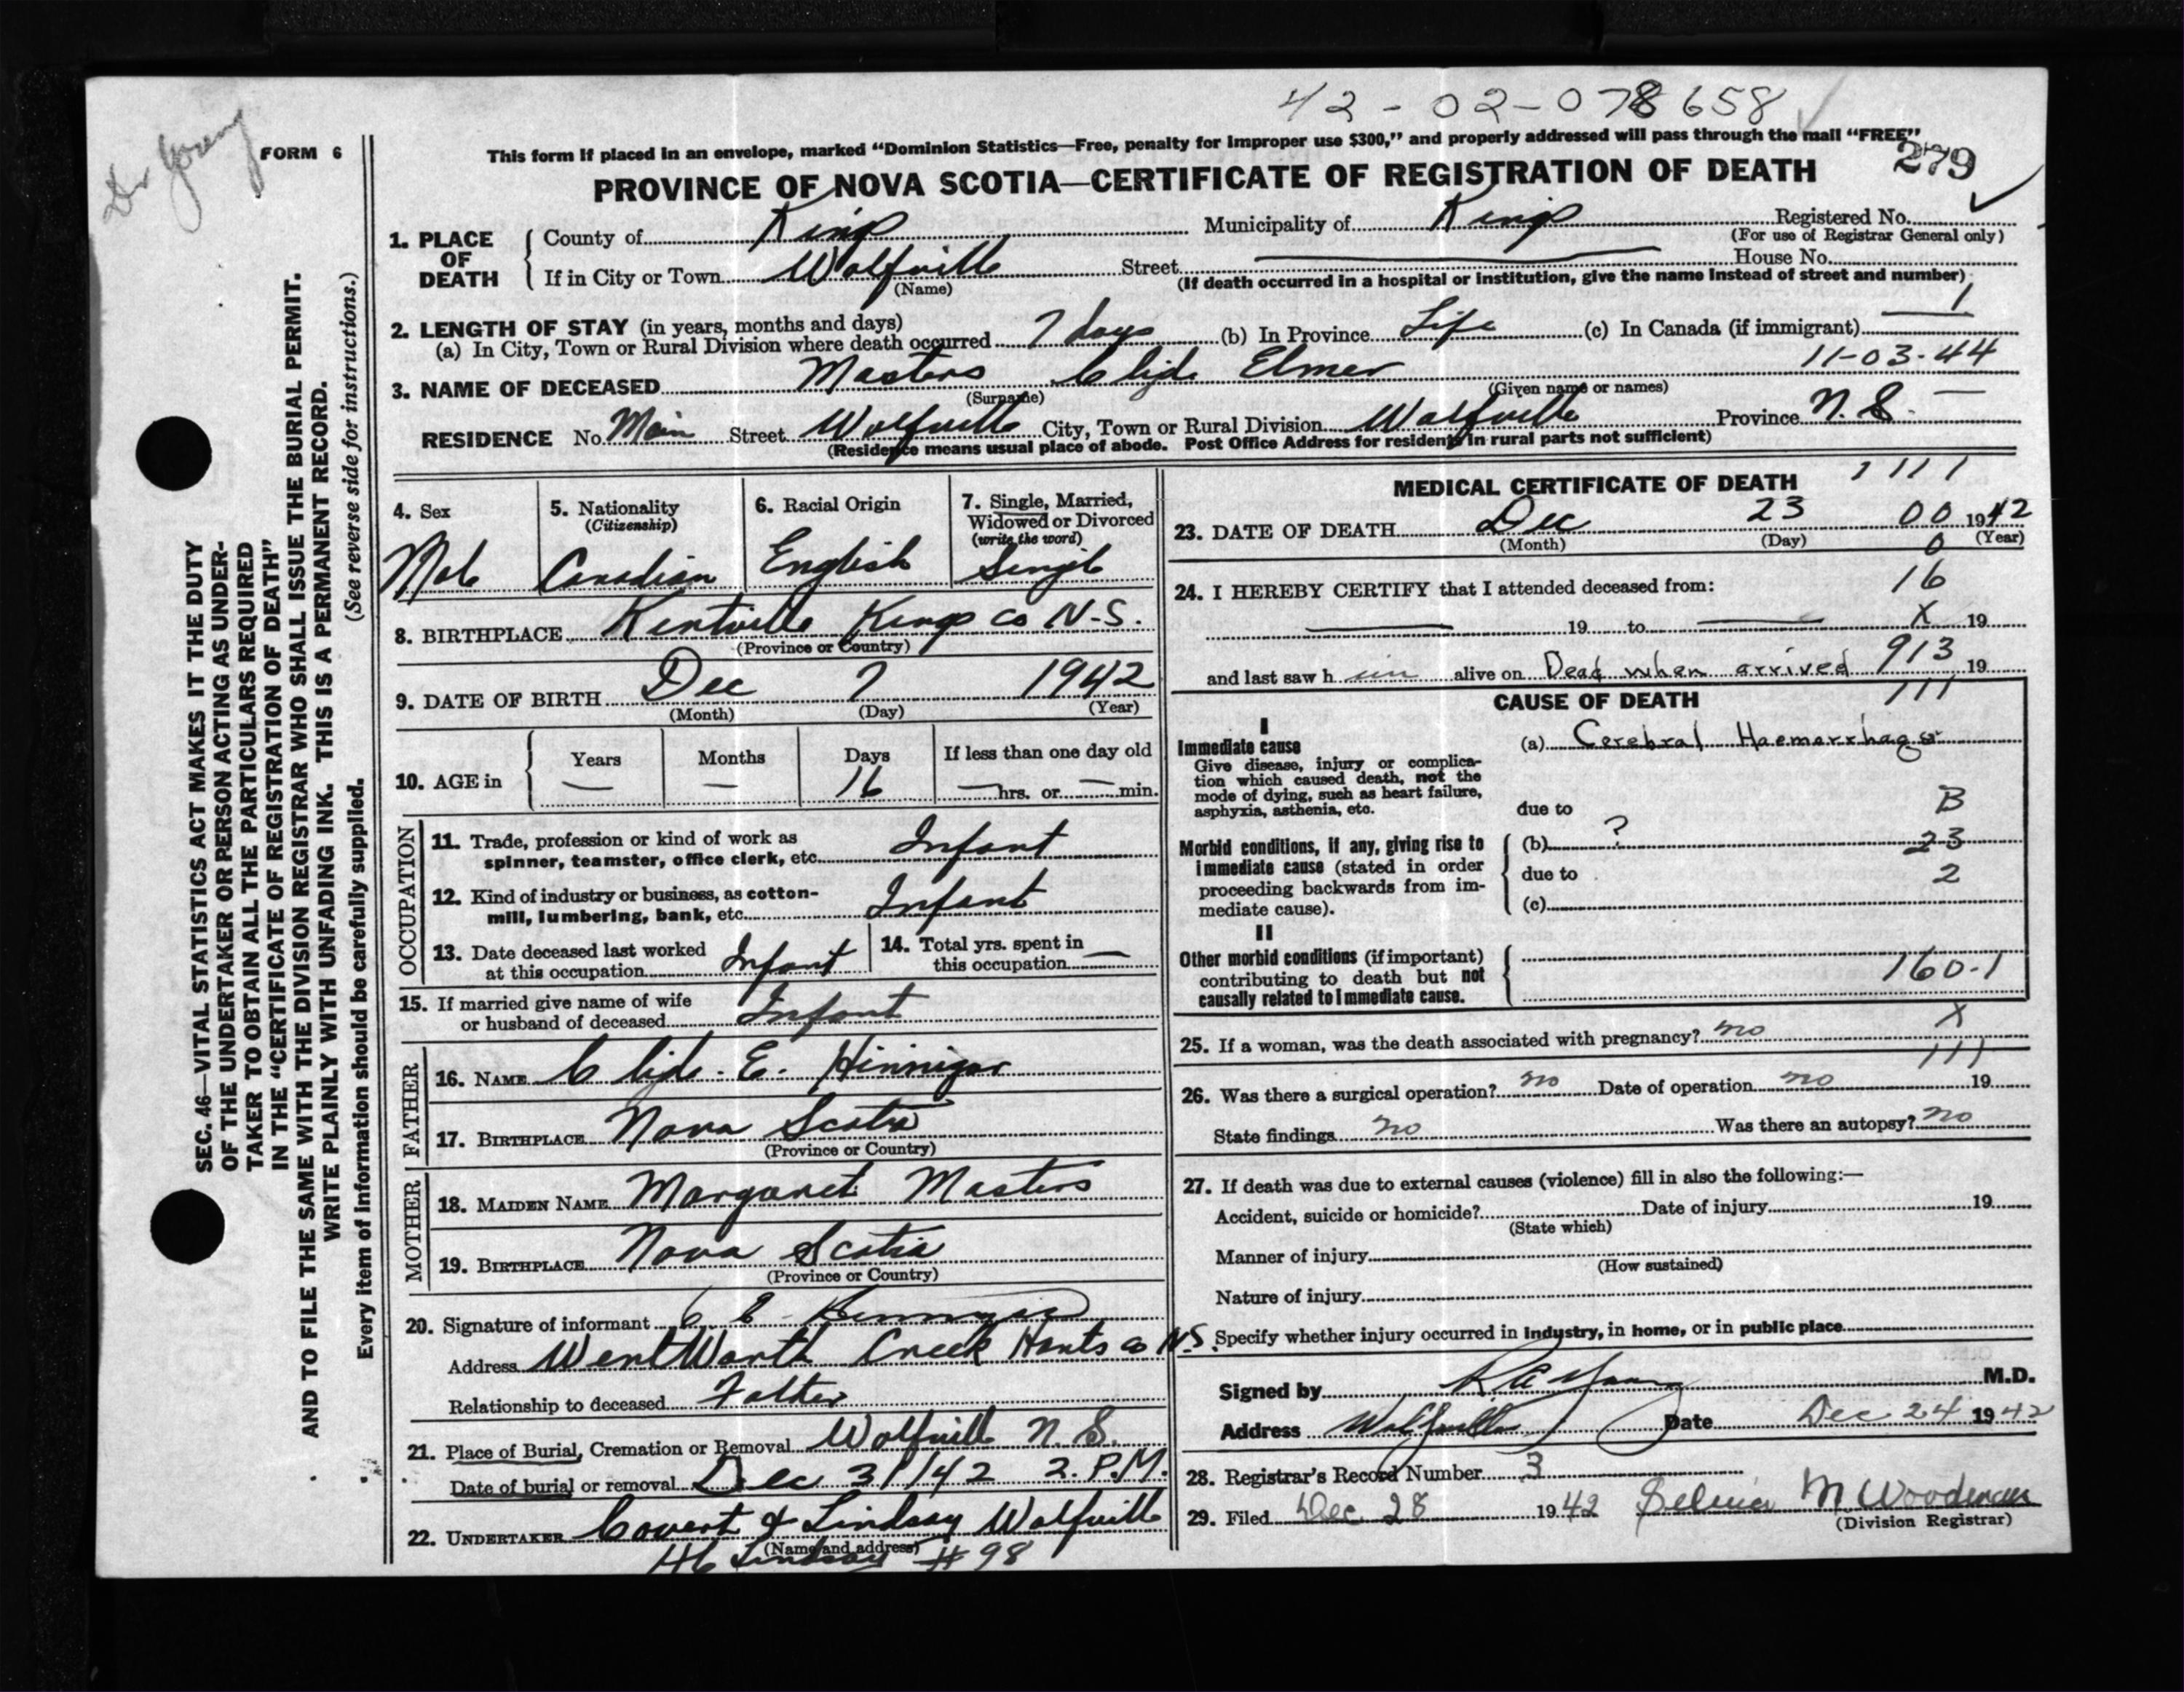 42-02-078658
Dr Young
FORM 6
This form if placed in an envelope, marked “Dominion Statistics—Free, penalty for improper use $300,” and properly addressed will pass through the mail “FREE”
279
PROVINCE OF NOVA SCOTIA—CERTIFICATE OF REGISTRATION OF DEATH
1. PLACE OF DEATH
County of Kings Municipality of Kings Registered No.
(For use of Registrar General only)
If in City or Town Wolfville Street House No.
(Name) (If death occurred in a hospital or institution, give the name instead of street and number)
1
2. LENGTH OF STAY (in years, months and days)
(a) In City, Town or Rural Division where death occurred 7 days (b) In Province Life (c) In Canada (if immigrant)
11-03-44
3. NAME OF DECEASED Masters Clide Elmer
(Surname) (Given name or names)
RESIDENCE No. Main Street Wolfville City, Town or Rural Division Wolfville Province N.S. —
(Residence means usual place of abode. Post Office Address for residents in rural parts not sufficient)
4. Sex
Male
5. Nationality
(Citizenship)
Canadian
6. Racial Origin
English
7. Single, Married,
Widowed or Divorced
(write the word)
Single
8. BIRTHPLACE Kentville Kings Co N.S.
(Province or Country)
9. DATE OF BIRTH Dec 7 1942
(Month) (Day) (Year)
10. AGE in
Years Months Days If less than one day old
— — 16 — hrs. or — min.
OCCUPATION
11. Trade, profession or kind of work as
spinner, teamster, office clerk, etc. Infant
12. Kind of industry or business, as cotton-
mill, lumbering, bank, etc. Infant
13. Date deceased last worked
at this occupation Infant
14. Total yrs. spent in
this occupation —
15. If married give name of wife
or husband of deceased Infant
FATHER
16. NAME Clide. E. Hinnigar
17. BIRTHPLACE Nova Scotia
(Province or Country)
MOTHER
18. MAIDEN NAME Margaret Masters
19. BIRTHPLACE Nova Scotia
(Province or Country)
20. Signature of informant C E
Address WentWorth Creek Hants Co N.S.
Relationship to deceased Father
21. Place of Burial, Cremation or Removal Wolfville N.S.
Date of burial or removal Dec 31/42 2. P.M.
22. UNDERTAKER Covert & Lindsay Wolfville
(Name and address)
Lindsay #98
MEDICAL CERTIFICATE OF DEATH 1111
23. DATE OF DEATH Dec 23 00 1942
(Month) (Day) 0 (Year)
24. I HEREBY CERTIFY that I attended deceased from: 16
19 to X 19
and last saw h im alive on Dead when arrived 913 19
CAUSE OF DEATH 111
I
Immediate cause
Give disease, injury or complica-
tion which caused death, not the
mode of dying, such as heart failure,
asphyxia, asthenia, etc.
(a) Cerebral Haemorrhage
due to B
Morbid conditions, if any, giving rise to
immediate cause (stated in order
proceeding backwards from im-
mediate cause).
(b) ? 23
due to 2
(c)
II
Other morbid conditions (if important)
contributing to death but not
causally related to immediate cause.
160.1
X
25. If a woman, was the death associated with pregnancy? no
111
26. Was there a surgical operation? no Date of operation no 19
State findings no Was there an autopsy? no
27. If death was due to external causes (violence) fill in also the following:—
Accident, suicide or homicide? Date of injury 19
(State which)
Manner of injury
(How sustained)
Nature of injury
Specify whether injury occurred in industry, in home, or in public place
Signed by R A Young M.D.
Address Wolfville Date Dec 24 1942
28. Registrar's Record Number 3
29. Filed Dec 28 1942 M. Woodman
(Division Registrar)
SEC. 46—VITAL STATISTICS ACT MAKES IT THE DUTY
OF THE UNDERTAKER OR PERSON ACTING AS UNDER-
TAKER TO OBTAIN ALL THE PARTICULARS REQUIRED
IN THE “CERTIFICATE OF REGISTRATION OF DEATH”
AND TO FILE THE SAME WITH THE DIVISION REGISTRAR WHO SHALL ISSUE THE BURIAL PERMIT.
WRITE PLAINLY WITH UNFADING INK. THIS IS A PERMANENT RECORD.
Every item of information should be carefully supplied. (See reverse side for instructions.)